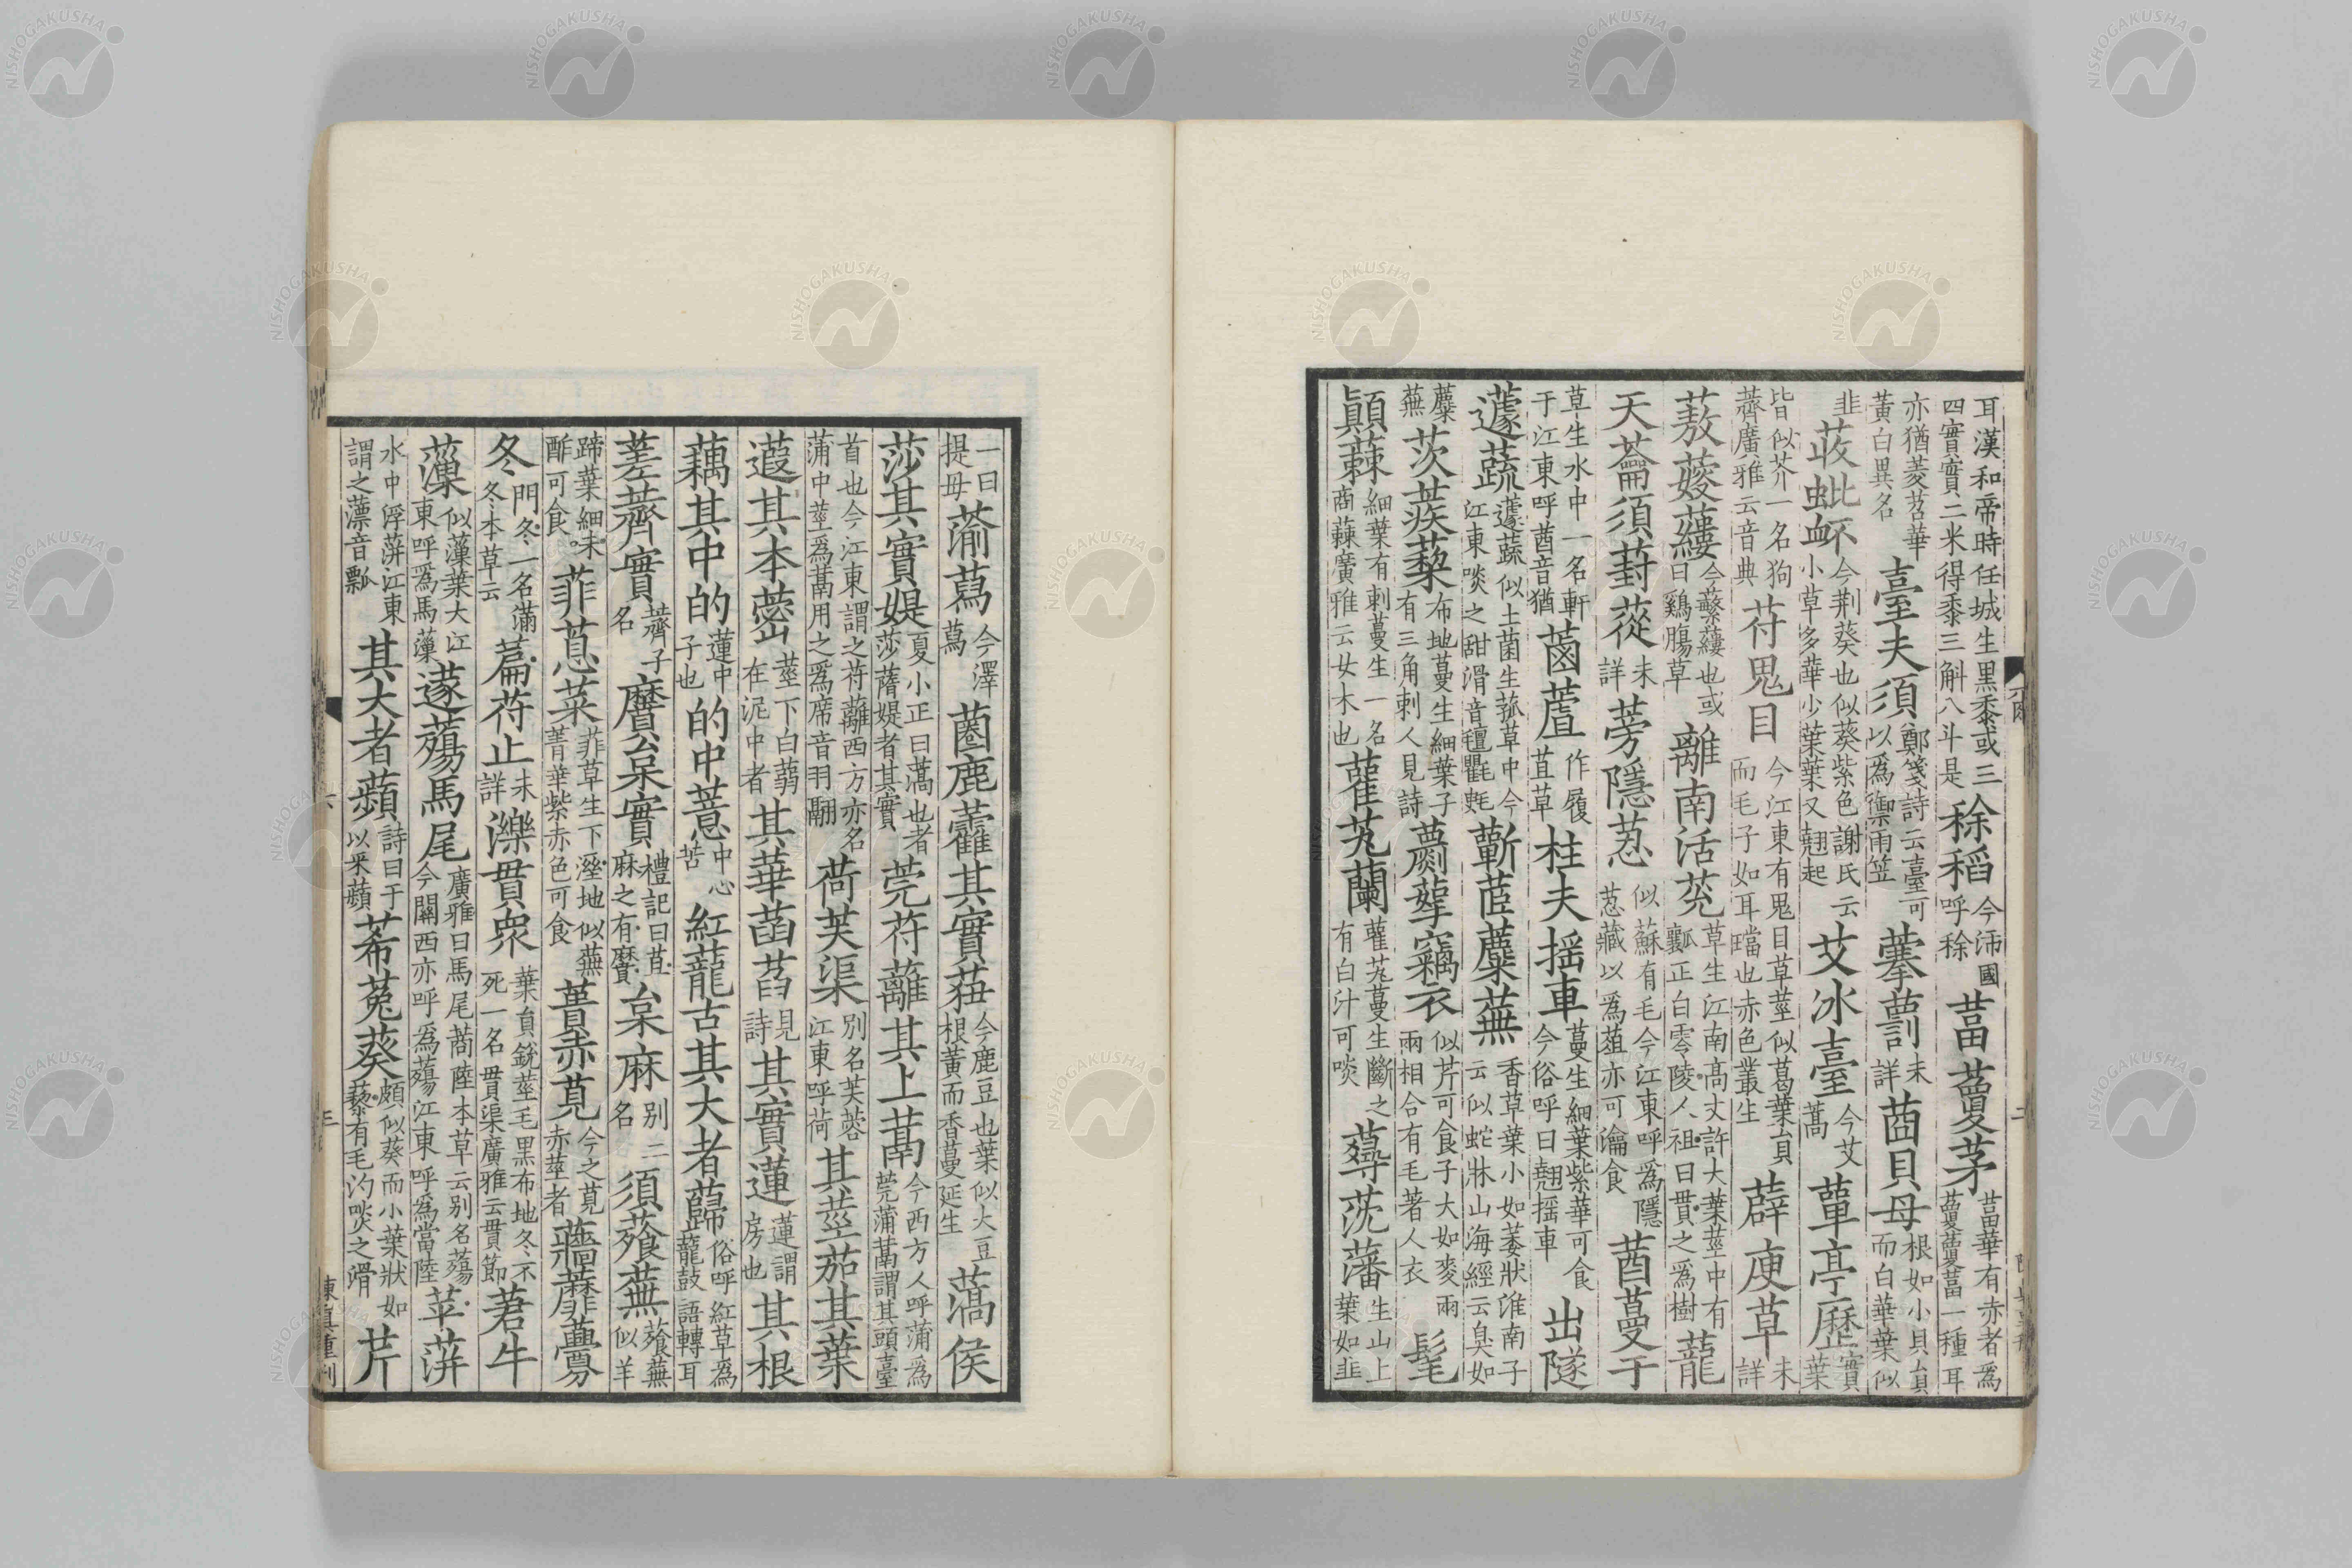 耳漢和帝時任城生黒黍或三四實實二米得黍三斛八斗是稌稻今沛國呼稌葍藑茅葍華有赤者爲藑藑葍一種耳
亦猶菱苕華黃白異名臺夫須鄭箋詩云臺可以爲禦雨笠藆藅未詳莔貝母根如小貝貟而白華葉似
韭荍蚍衃今荆葵也似葵紫色謝氏云小草多華少葉葉又翹起艾冰臺今艾蒿蕇亭歷實葉
皆似芥一名狗薺廣雅云音典苻鬼目今江東有鬼目草莖似葛葉貟而毛子如耳璫也赤色叢生薜庾草未詳
蔜䕅蔞今蘩蔞也或曰鷄腸草離南活莌草生江南高丈許大葉莖中有瓤正白零陵人祖曰貫之爲樹蘢
天蘥須葑蓯未詳蒡隱荵似蘇有毛今江東呼爲隱荵藏以爲葅亦可瀹食茜蔓于
草生水中一名軒于江東呼茜音猶菡蘆作履苴草柱夫摇車蔓生細葉紫華可食今俗呼曰翹摇車出隧
蘧蔬蘧蔬似土菌生菰草中今江東啖之甜滑音氊氍㲣蘄茞蘪蕪香草葉小如萎狀淮南子云似蛇牀山海經云臭如
蘪蕪茨蒺藜布地蔓生細葉子有三角刺人見詩蘮蒘竊衣似芹可食子大如麥兩兩相合有毛著人衣髦
顚蕀細葉有刺蔓生一名商蕀廣雅云女木也雚芄蘭雚芄蔓生斷之有白汁可啖蕁莐藩生山上葉如韭
一曰提母蕍蕮今澤蕮蔨鹿藿其實莥今鹿豆也葉似大豆根黃而香蔓延生薃侯
莎其實媞夏小正曰薃也者莎蓨媞者其實莞苻蘺其上蒚今西方人呼蒲爲莞蒲蒚謂其頭臺
首也今江東謂之苻蘺西方亦名蒲中莖爲蒚用之爲席音羽翮荷芙渠別名芙蓉江東呼荷其莖茄其葉
蕸其本蔤莖下白蒻在泥中者其華菡萏見詩其實蓮蓮謂房也其根
藕其中的蓮中子也的中薏中心苦紅蘢古其大者蘬俗呼紅草爲蘢鼓語轉耳
蒫薺實薺子名黂枲實禮記曰苴麻之有黂枲麻別二名須薞蕪薞蕪似羊
蹄葉細味酢可食菲蒠菜菲草生下溼地似蕪菁華紫赤色可食蕢赤莧今之莧赤莖者蘠蘼虋
冬門冬一名滿冬本草云萹苻止未詳濼貫衆葉貟鋭莖毛黒布地冬不死一名貫渠廣雅云貫節莙牛
薻似薻葉大江東呼爲馬薻蓫薚馬尾廣雅曰馬尾蔏陸本草云別名薚今關西亦呼爲薚江東呼爲當陸苹蓱
水中浮蓱江東謂之薸音瓢其大者蘋詩曰于以采蘋莃菟葵頗似葵而小葉狀如藜有毛汋啖之滑芹